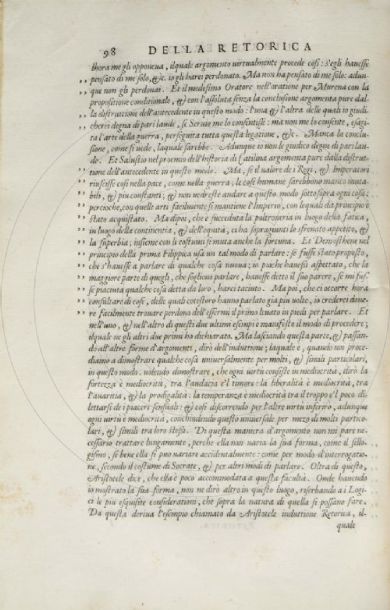 98 DELLA RETORICA
thora me gli opponeua, ilquale argomento virtualmente procede cosi: s'egli hauesse
pensato di me solo, &c. io gli harei perdonato. Ma non ha pensato di me solo: adun-
que non gli perdonai. Et il medesimo Oratore nell'oratione per Murena con la
propositione conditionale, & con l'assoluta senza la conclusione argomenta pure dal-
la distruttione dell'antecedente in questo modo: l'una & l'altra delle quali io giudi-
cherei degna di gran laude, se Seruio me lo consentisse: ma non me lo consente, esagi-
ta l'arte della guerra, perseguita tutta questa legatione, &c. Manca la conclu-
sione, come si uede, laquale sarebbe. Adunque io non le giudico degne di gran lau-
de. Et Salustio nel proemio dell'historia di Catilina argomenta pure dalla distrut-
tione dell'antecedente in questo modo. Ma, se il ualore de i Regi, & Imperatori
riuscisse cosi nella pace, come nella guerra; le cose humane sarebbono manco muta-
bili, & piu constanti; & non uedreste andare a questo modo sottosopra ogni cosa:
percioche, con quelle arti facilmente si mantiene l'Imperio, con lequali da principio è
stato acquistato. Ma dipoi, che è succeduta la poltroneria in luogo della fatica,
in luogo della continentia, & dell'equità, ci ha sopragiunti lo sfrenato appetito, &
la superbia; insieme con li costumi si muta anche la fortuna. Et Demosthene nel
principio della prima Filippica usa un tal modo di parlare: se fusse stato proposto,
che s'hauesse a parlare di qualche cosa nuoua; io poiche hauessi aspettato, che la
maggiore parte di quegli, che sogliono parlare, hauesse detto il suo parere, se mi fus-
se piaciuta qualche cosa detta da loro, harei taciuto. Ma poi, che ci accade hora
consultare di cose, delle quali costoro hanno parlato gia piu uolte, io crederei doue-
re facilmente trouare perdono dell'essermi il primo leuato in piedi per parlare. Et
nell'uno, & nell'altro di questi due ultimi esempi è manifesto il modo di procedere;
ilquale ne gli altri due primi ho dichiarato. Ma lasciando questa parte, & passan-
do all'altre forme d'argomenti, dirò dell'induttione; laquale è, quando noi proce-
diamo a dimostrare qualche cosa uniuersale per molti, & simili particulari,
in questo modo. uolendo dimostrare, che ogni uertu consiste in mediocrità, dirò la
fortezza è mediocrità, tra l'audacia e'l timore: la liberalità è mediocrità, tra
l'auaritia, & la prodigalità: la temperanza è mediocrità tra il troppo e'l poco di-
lettarsi de i piaceri sensuali: & cosi discorrendo per l'altre uirtu inferiro, adunque
ogni uirtu è mediocrità, conchiudendo questo uniuersale per mezo di molti partico-
lari, & simili tra loro stessi. Di questa maniera d'argomento non mi pare ne-
cessario trattare lungamente, perche ella non uaria la sua forma, come il sillo-
gismo, se bene ella si puo uariare accidentalmente: come per modo d'interrogatio-
ne, secondo il costume di Socrate, & per altri modi di parlare. Oltra di questo,
Aristotele dice, che ella è poco accommodata a questa facultà. Onde hauendo
io mostrato la sua forma, non ne dirò altro in questo luogo, riserbando a i Logi-
ci le piu esquisite considerationi, che sopra la natura di quella si possono fare.
Da questa deriua l'esempio chiamato da Aristotele induttione Retorica, il-
quale